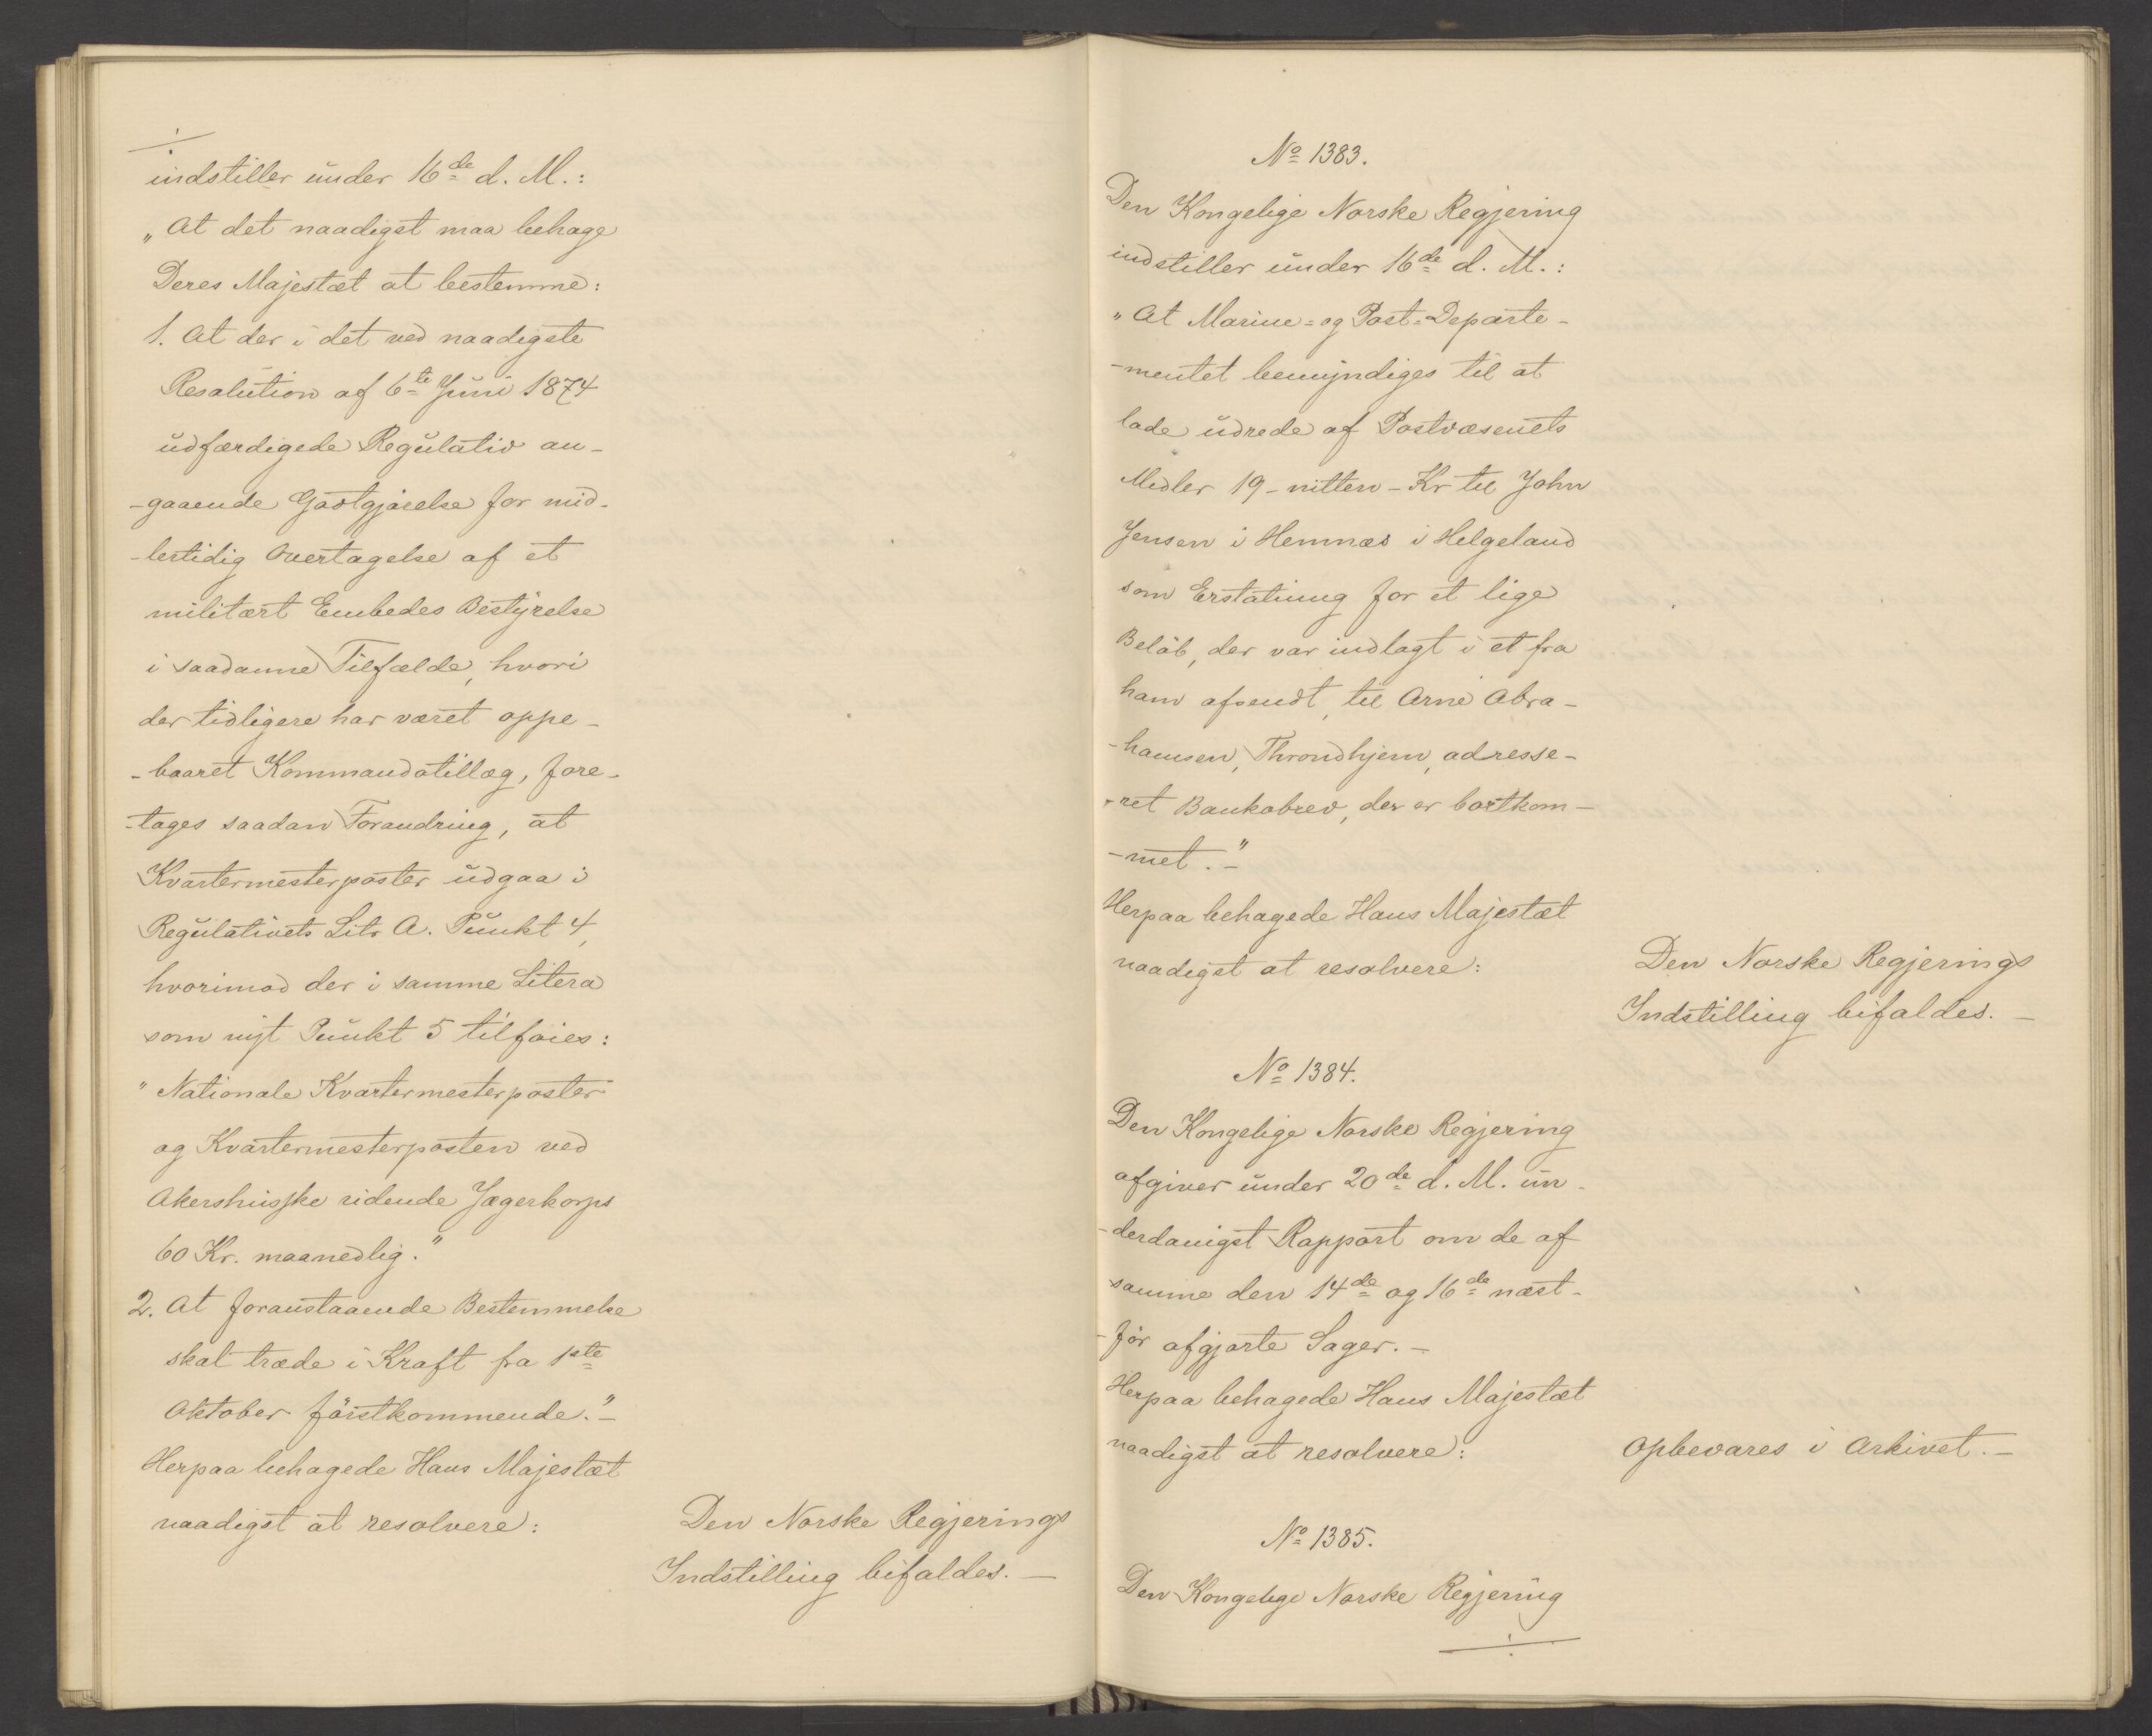 indstiller under 16de d. M.:
„At det naadigst maa behage
Deres Majestæt at bestemme:
1. At der i det ved naadigste
Resolution af 6te Juni 1874
udfærdigede Regulativ an-
-gaaende Godtgjörelse for mid-
-lertidig Overtagelse af et
militært Embedes Bestyrelse
i saadanne Tilfælde, hvori
der tidligere har været oppe-
-baaret Kommandotillæg, fore-
-tages saadan Forandring, at
Kvartermesterposter udgaa i
Regulativets Litr A. Punkt 4,
hvorimod der i samme Litera
som nyt Punkt 5 tilföies:
"Nationale Kvartermesterposter
og Kvartermesterposten ved
Akershusske ridende Jægerkorps
60 Kr. maanedlig."
2. At foranstaaende Bestemmelse
skal træde i Kraft fra 1ste
Oktober förstkommende."-
Herpaa behagede Hans Majestæt
naadigst at resolvere:
Den Norske Regjerings
Indstilling bifaldes. -
No 1383.
Den Kongelige Norske Regjering
indstiller under 16de d. M.:
"At Marine- og Post-Departe-
-mentet bemyndiges til at
lade udrede af Postvæsenets
Midler 19 - nitten - Kr til John
Jensen i Hemnæs i Helgeland
som Erstatning for et lige
Belöb, der var indlagt i et fra
ham afsendt, til Arne Abra-
-hamsen, Throndhjem, adresse-
-ret Bankobrev, der er bortkom-
-met."-
Herpaa behagede Hans Majestæt
naadigst at resolvere:
Den Norske Regjerings
Indstilling bifaldes. -
No 1384.
Den Kongelige Norske Regjering
afgiver under 20de d. M. un-
-derdanigst Rapport om de af
samme den 14de og 16de næst-
-för afgjorte Sager. -
Herpaa behagede Hans Majestæt
naadigst at resolvere:
Opbevares i Arkivet. -
No 1385.
Den Kongelige Norske Regjering